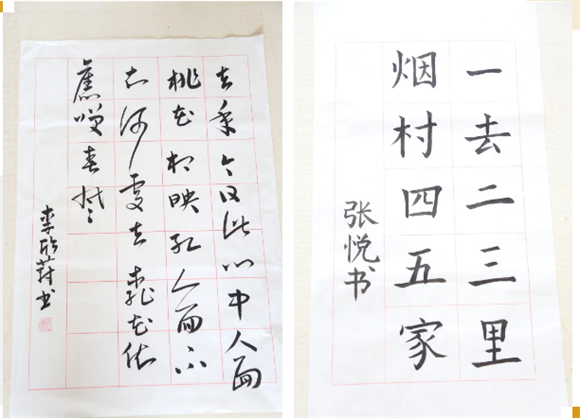 去年今日此门中人面
桃花相映红人面不
知何处去桃花依
舊咲春风
李欣蔚书
一去二三里
烟村四五家
张悦书